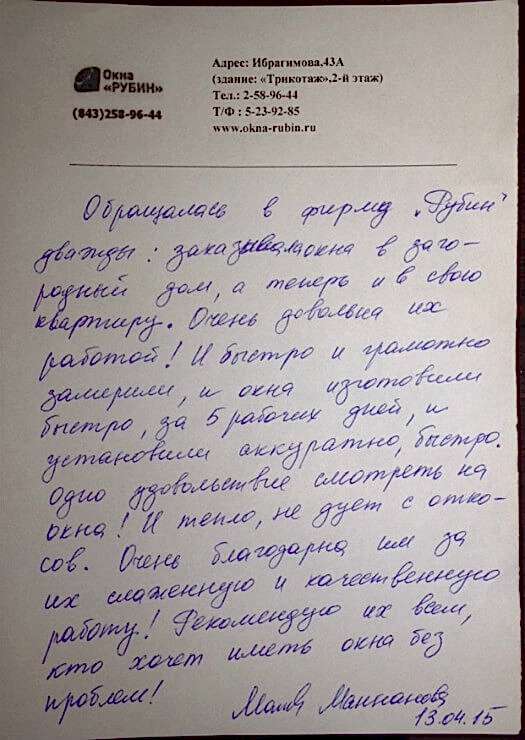 Окна
«РУБИН»
(843)258-96-44
Адрес: Ибрагимова,43А
(здание: «Трикотаж»,2-й этаж)
Тел.: 2-58-96-44
Т/Ф : 5-23-92-85
www.okna-rubin.ru
Обращалась в фирму „Рубин"
дважды: заказывала окна в заго-
родный дом, а теперь и в свою
квартиру. Очень довольна их
работой! И быстро и грамотно
замерили, и окна изготовили
быстро, за 5 рабочих дней, и
установили аккуратно, быстро.
Одно удовольствие смотреть на
окна! И тепло, не дует с отко-
сов. Очень благодарна им за
их слаженную и качественную
работу! Рекомендую их всем,
кто хочет иметь окна без
проблем!
Маннанова
13.04.15